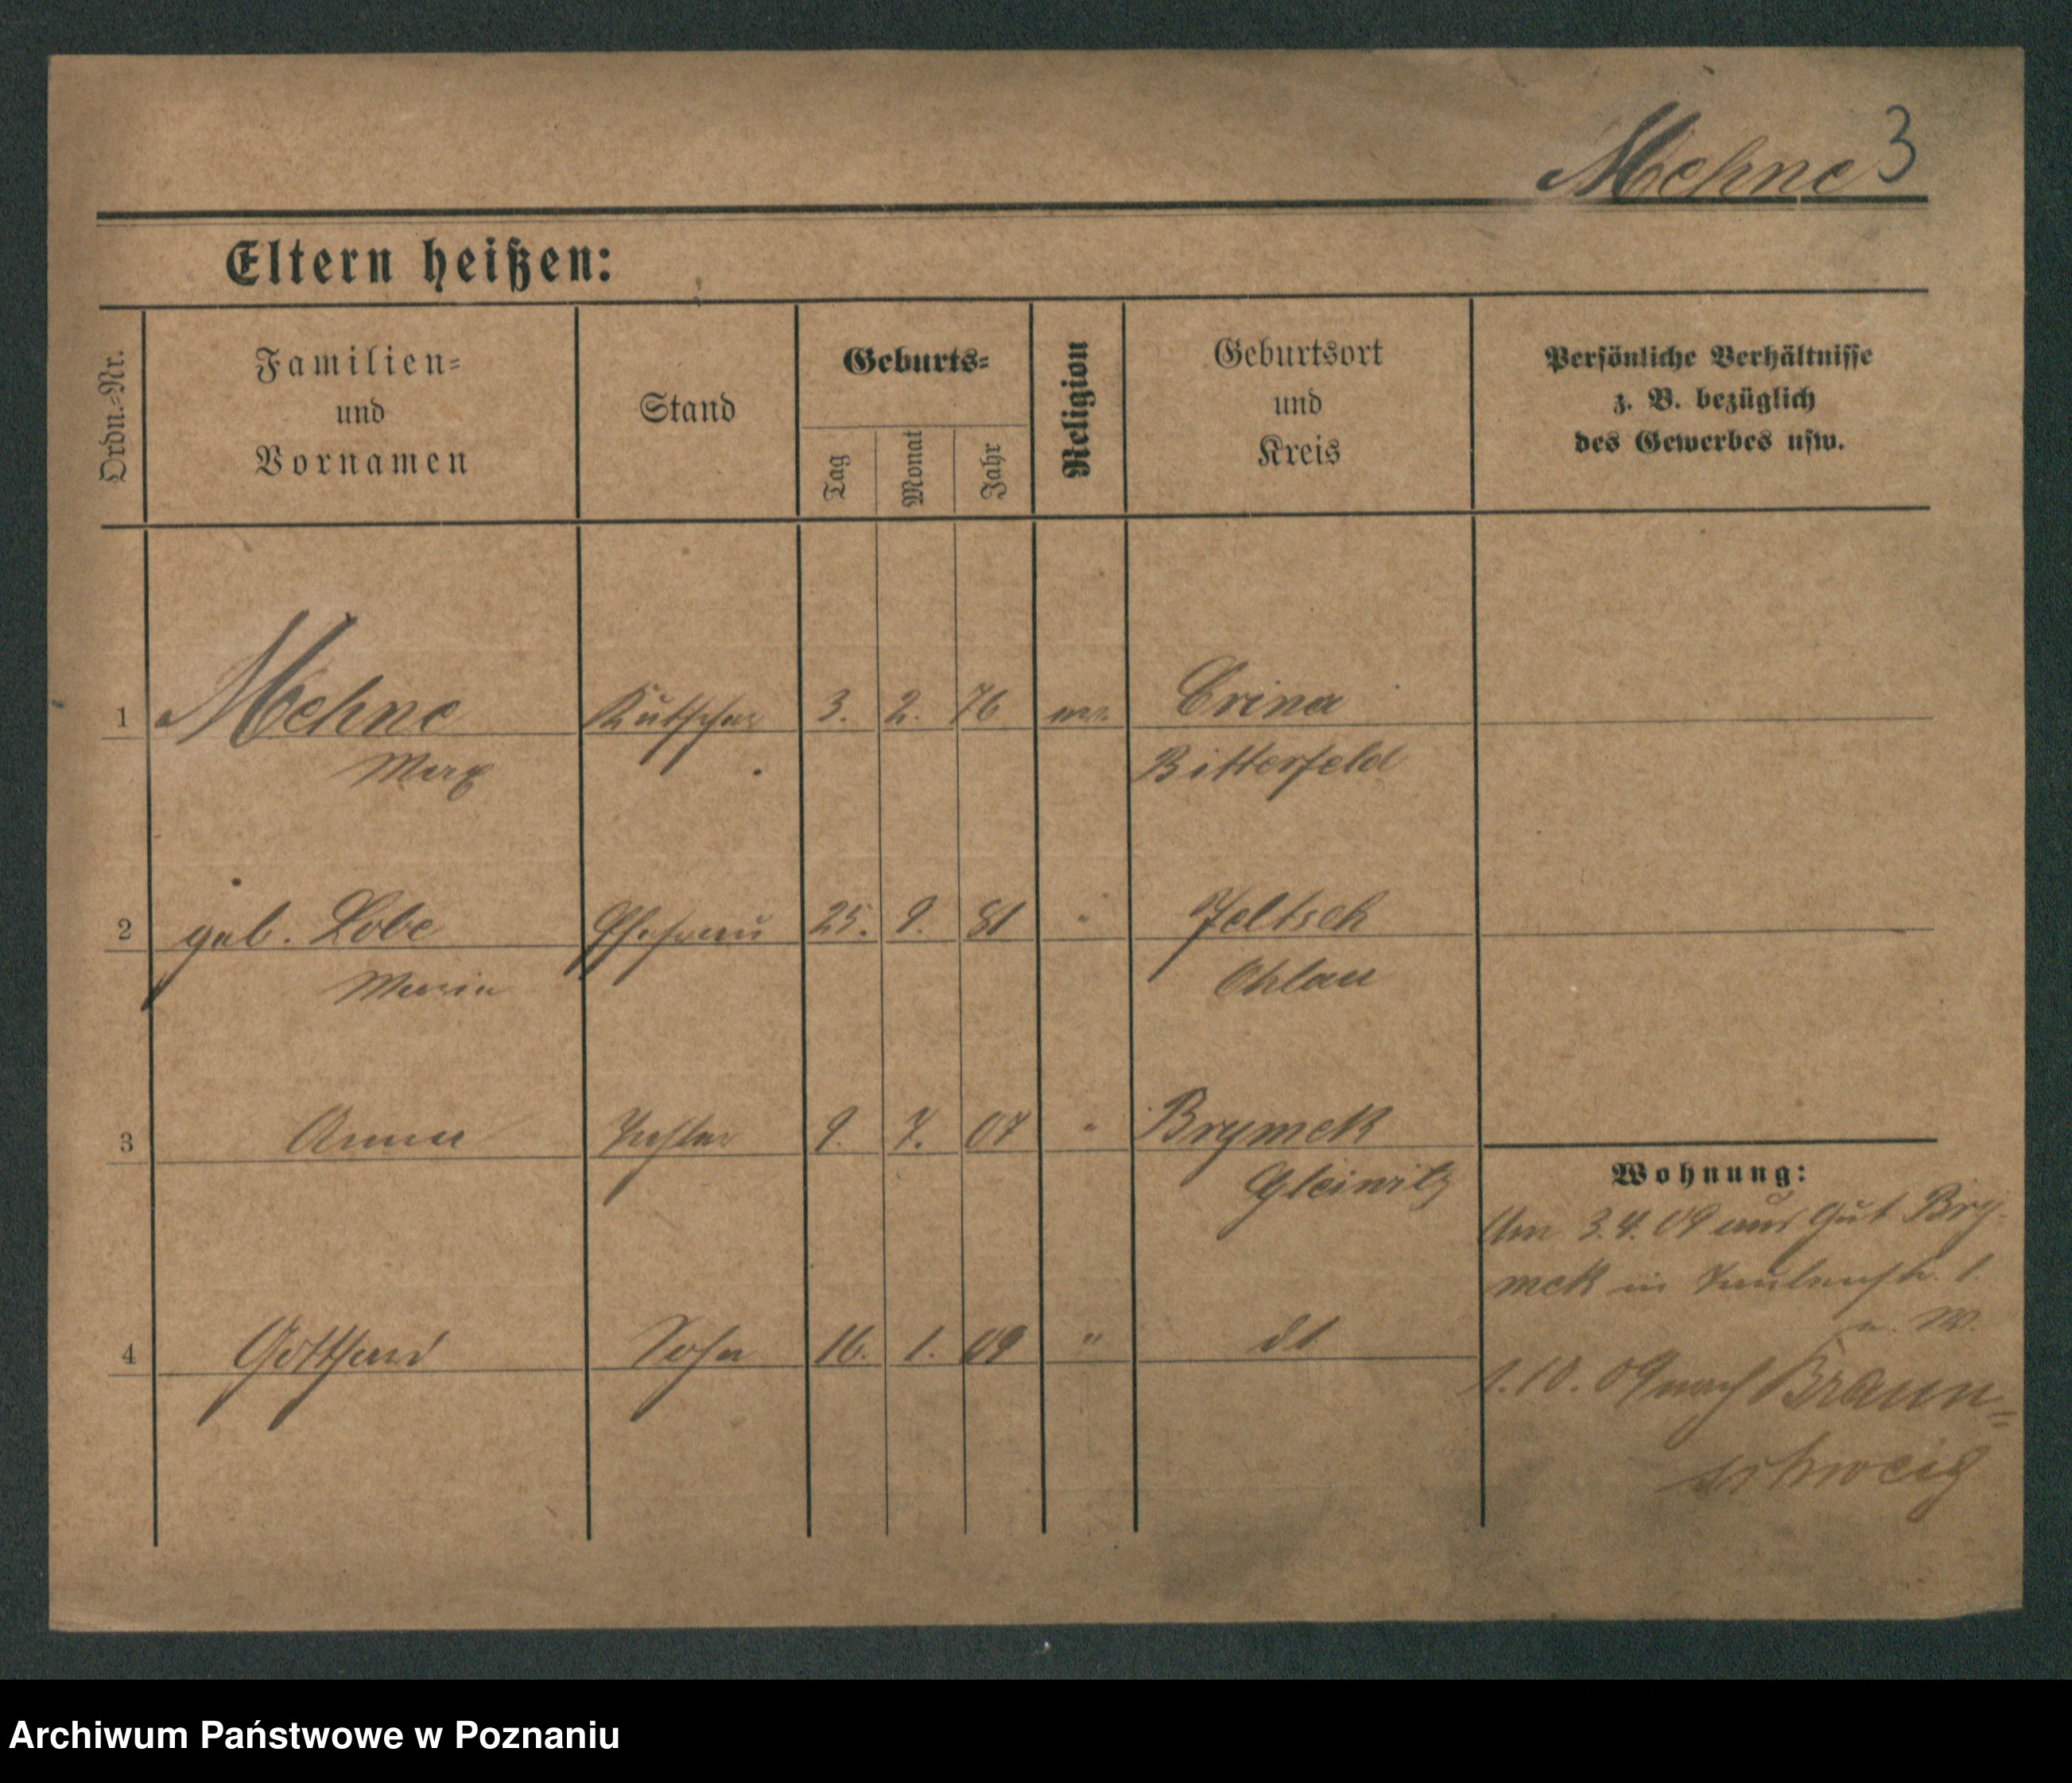 Mehne 3
Eltern heißen:
Ordn.-Nr.
Familien-
und
Vornamen
Stand
Geburts-
Tag
Monat
Jahr
Religion
Geburtsort
und
Kreis
Persönliche Verhältnisse
z. B. bezüglich
des Gewerbes usw.
1 Mehne Kutscher 3. 2. 76 ev. Crina
Max Bitterfeld
2 geb. Lobe Ehefrau 25. 9. 81 " Jeltsch
Maria Ohlau
3 Anna Tochter 9. 7. 07 " Brynnek
Gleiwitz
4 Gotthard Sohn 16. 1. 09 " dt
Wohnung:
Am 3.4.09 aus Gut Bry-
nnek in 1.
1.10.09 nach Braun-
schweig
Archiwum Państwowe w Poznaniu